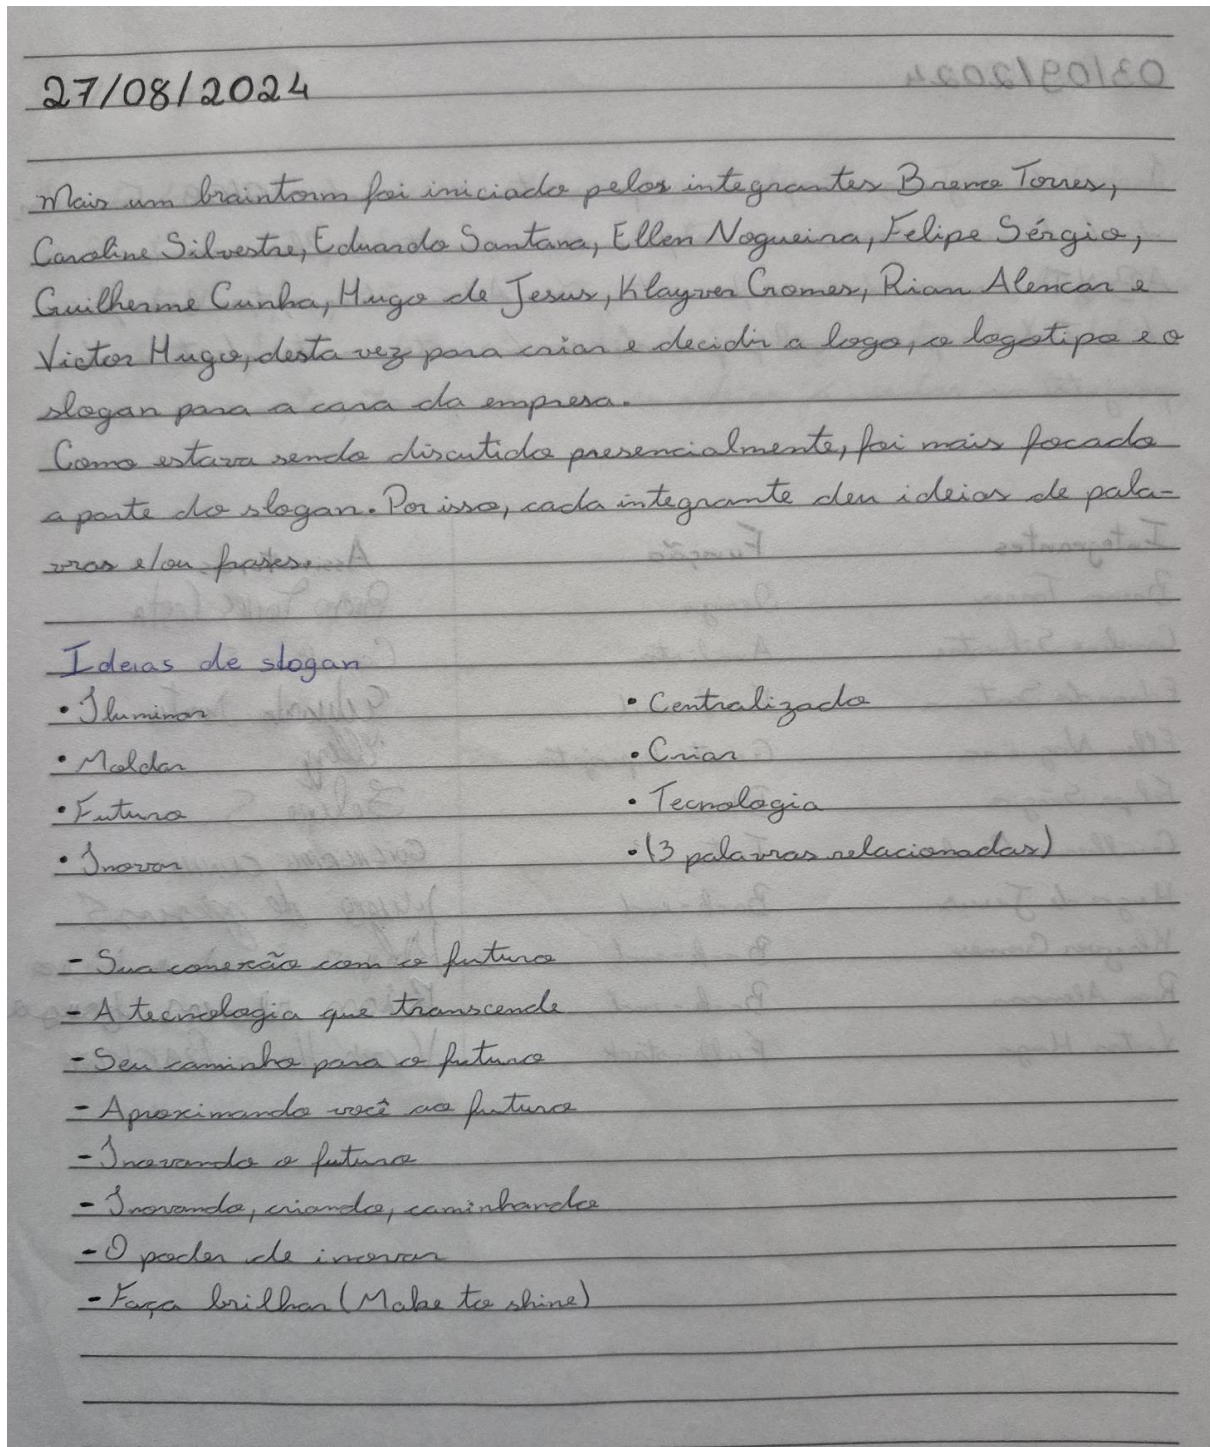 27/08/2024
Mais um braintorm foi iniciado pelos integrantes Breno Torres,
Caroline Silvestre, Eduardo Santana, Ellen Nogueira, Felipe Sérgio,
Guilherme Cunha, Hugo de Jesus, Klayver Gomes, Rian Alencar e
Victor Hugo, desta vez para criar e decidir a logo, o logotipo e o
slogan para a cara da empresa.
Como estava sendo discutido presencialmente, foi mais focado
a parte do slogan. Por isso, cada integrante deu ideias de pala-
vras e/ou frases.
Ideias de slogan
• Iluminar
• Centralizado
• Moldar
• Criar
• Futuro
• Tecnologia
• Inovar
• (3 palavras relacionadas)
- Sua conexão com o futuro
- A tecnologia que transcende
- Seu caminho para o futuro
- Aproximando você ao futuro
- Inovando o futuro
- Inovando, criando, caminhando
- O poder de inovar
- Faça brilhar (Make to shine)